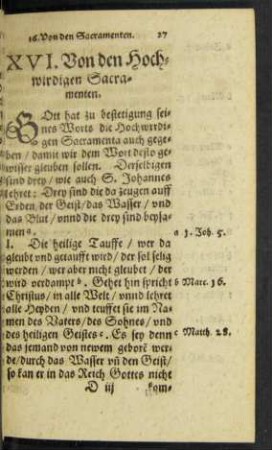 16. Von den Sacramenten. 27
XVI. Von den Hoch-
wirdigen Sacra-
menten.
GOtt hat zu bestetigung sei-
nes Worts die Hochwirdi-
gen Sacramenta auch gege-
ben / damit wir dem Wort desto ge-
wisser gleuben sollen. Derselbigen
sind drey / wie auch S. Johannes
lehret: Drey sind die da zeugen auff
Erden / der Geist / das Wasser / vnd
das Blut / vnnd die drey sind beysa-
men a. a 1. Joh. 5.
I. Die heilige Tauffe / wer da
gleubt vnd getaufft wird / der sol selig
werden / wer aber nicht gleubet / der
wird verdampt b. Gehet hin spricht b Marc. 16.
Christus / in alle Welt / vnnd lehret
alle Heyden / vnd teuffet sie im Na-
men des Vaters / des Sohnes / vnd
des heiligen Geistes c. Es sey denn c Matth. 28.
das jemand von newem geborē wer-
de / durch das Wasser vñ den Geist /
so kan er in das Reich Gottes nicht
D iij kom-